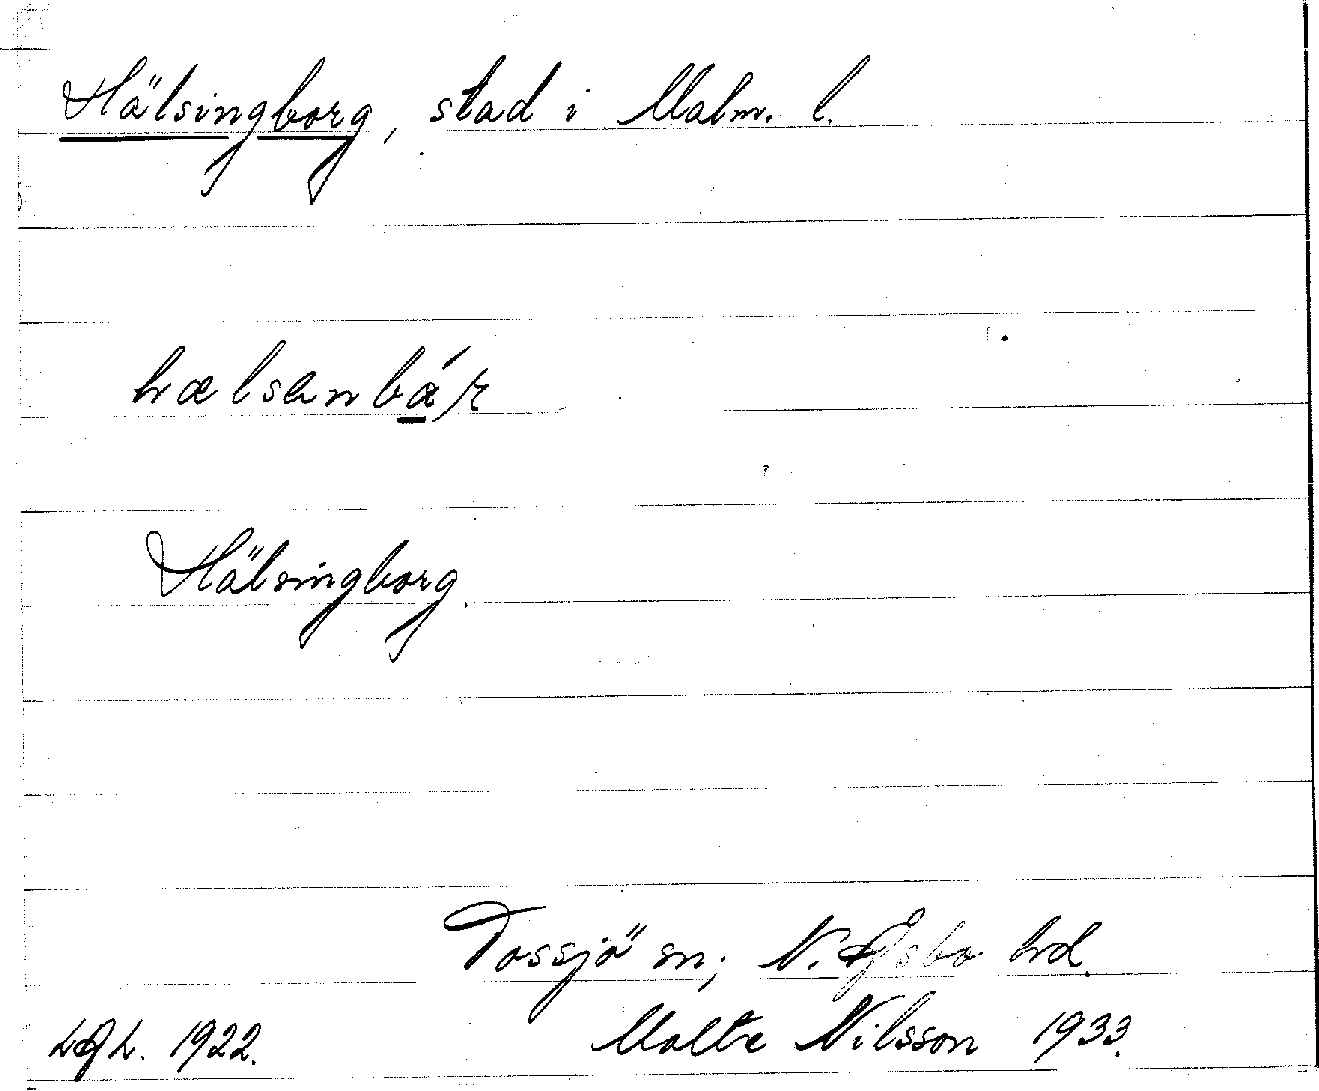 Hälsingborg, stad i Malm. l.
hælsenbá̱r
Hälsingborg.
Tossjö sn; N. Åsbo hd.
1922.
Malte Nilsson 1933.